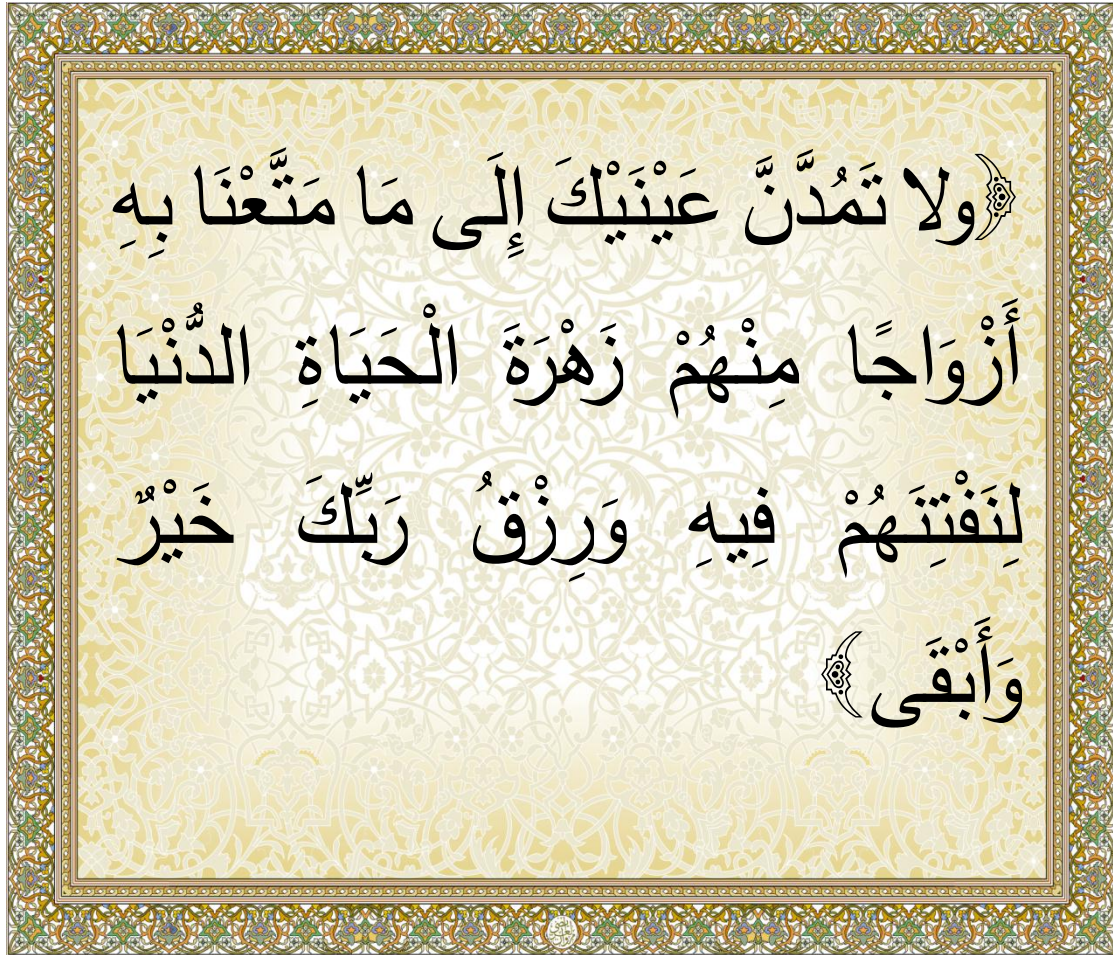 ﴿ولا تَمُدَّنَّ عَيْنَيْكَ إِلَى مَا مَتَّعْنَا بِهِ
أَزْوَاجًا مِنْهُمْ زَهْرَةَ الْحَيَاةِ الدُّنْيَا
لِنَفْتِنَهُمْ فِيهِ وَرِزْقُ رَبِّكَ خَيْرٌ
وَأَبْقَى﴾